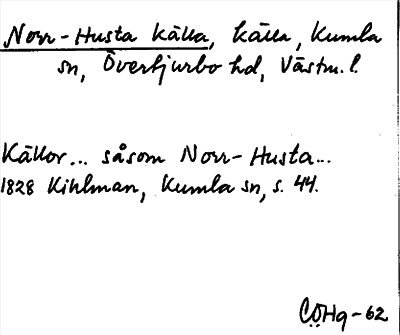 Norr-Husta Källa, källa, Kumla
sn, Övertjurbo hd, Västm. l.
Källor... såsom Norr-Husta...
1828 Kihlman, Kumla sn, s. 44.
CÖHg-62